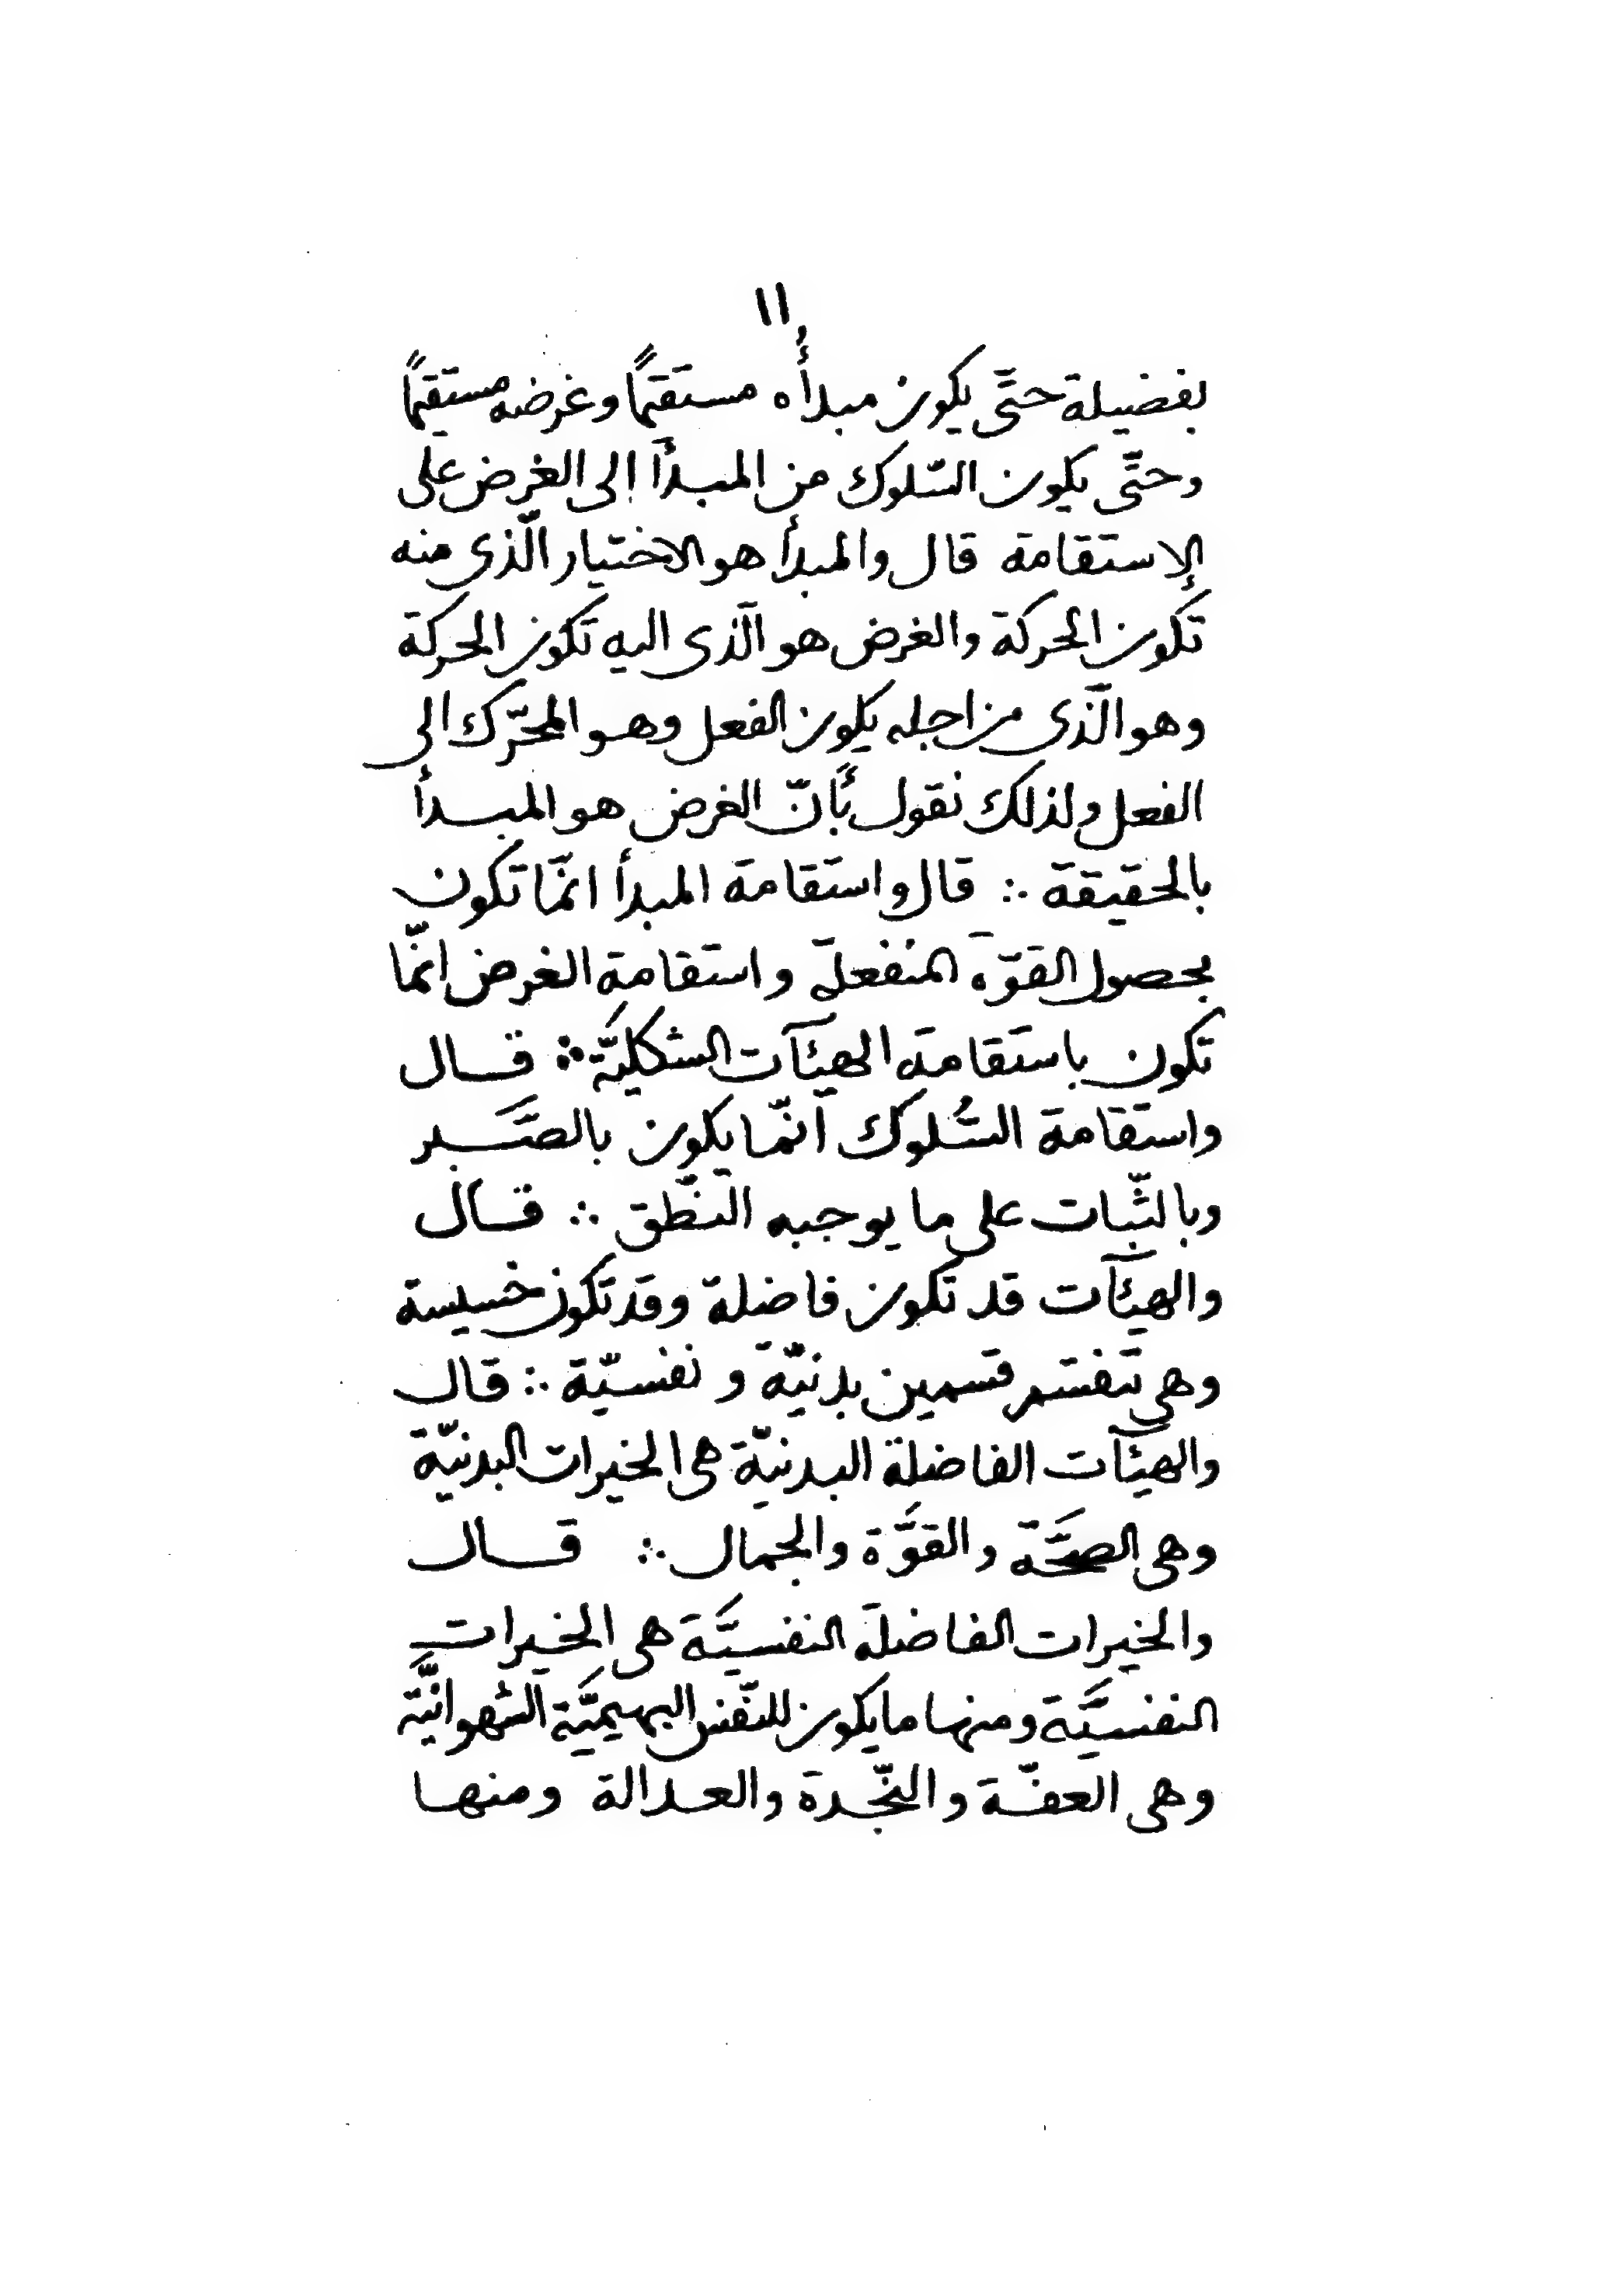 ١١
بفضيلة حتَّى يكون مبدأُه مستقيمًا وغرضه مستقيمًا
وحتَّى يكون السّلوك من المبدأ إلى الغرض على
الاستقامة قال والمبدأ هو الاختيار الّذى منه
تكون الحركة والغرض هو الّذى اليه تكون الحركة
وهو الّذى من اجله يكون الفعل وهو المحرّك الى
الفعل ولذلك نقول بأنّ الغرض هو المبدأ
بالحقيقة ∴ قال واستقامة المبدأ انّما تكون
بحصول القوّة المنفعلة واستقامة الغرض انّما
تكون باستقامة الهيئآت الشكليَّة ∴ قال
واستقامة السُّلوك انّما يكون بالصَّبر
وبالثّبات على ما يوجبه النّطق ∴ قال
والهيئآت قد تكون فاضلة وقد تكون خسيسة
وهى تنقسم قسمين بدنيّة ونفسيّة ∴ قال
والهيئآت الفاضلة البدنيّة هى الخيرات البدنيّة
وهى الصحَّة والقوَّة والجمال ∴ قال
والخيرات الفاضلة النفسيَّة هى الخيرات
النفسيَّة ومنها ما يكون للنّفس البهيميَّة الشهوانيَّة
وهى العفّة والنّجدة والعدالة ومنها